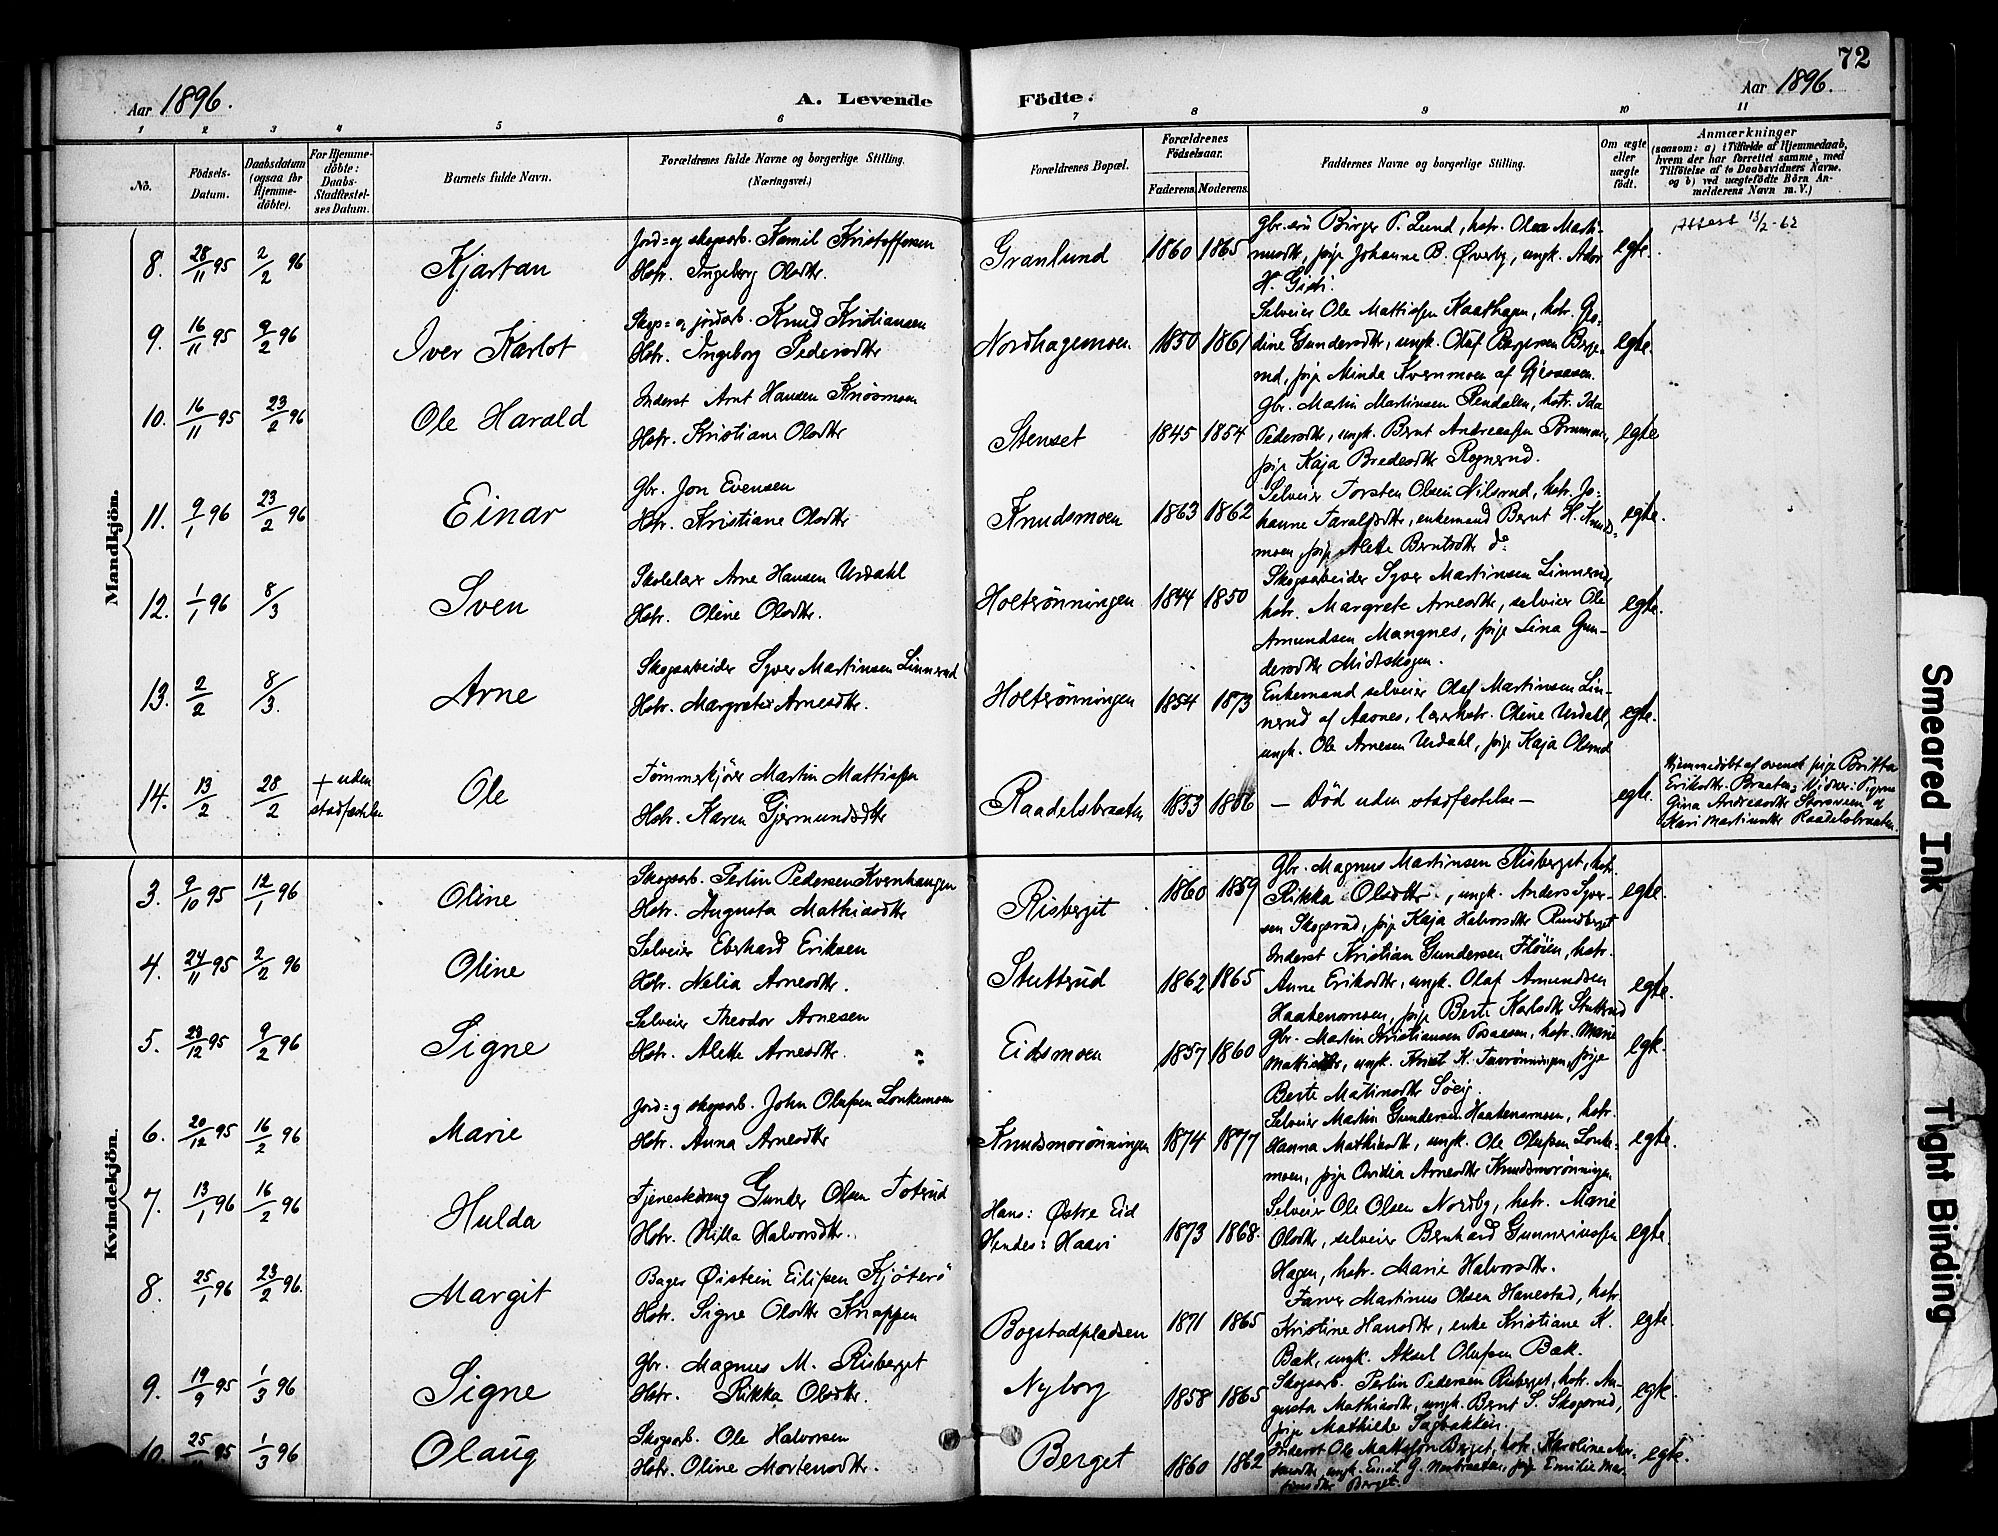 72
Aar 1896.
A. Levende
Födte.
Aar 1896.
1 2 3 4 5 6 7 8 9 10 11
No.
Födsels-
Datum.
Daabsdatum
(ogsaa for
Hjemme-
döbte).
For Hjemme-
döbte:
Daabs-
Stadfæstel-
ses Datum.
Barnets fulde Navn.
Forældrenes fulde Navne og borgerlige Stilling.
(Næringsvei.)
Forældrenes Bopæl.
Forældrenes
Födselsaar.
Faderens. Moderens.
Faddernes Navne og borgerlig Stilling.
Om ægte
eller
uægte
födt.
Anmærkninger
(saasom: a) i Tilfælde af Hjemmedaab,
hvem der har forrettet samme, med
Tilföielse af to Daabsvidners Navne,
og b) ved uægtefödte Börn An-
melderens Navn m. V.)
Mandkjön.
8. 28/11 95 2/2 96 Kjartan
Jord= og skogsarb. Kamil Kristoffersen
Hstr. Ingeborg Olsdtr.
Granlund 1860 1865
Gbr.sön Birger P. Lund, hstr. Olea Marti-
nusdtr, pige Johanne B. Øverby, ungk. Ador
H. Gisti.
egte.
Attest 13/2-62
9. 16/11 95 9/2 96 Iver Karlot
Skogs= og jordarb. Knud Kristiansen
Hstr. Ingeborg Pedersdtr
Nordhagemoen. 1850 1861
Selveier Ole Mattissen Kaathagen, hstr. Go-
dine Gundersdtr, ungk. Olaf Birgersen Berge-
rud, pige Minda Kvernmoen af Gjessåsen.
egte.
10. 16/11 95 23/2 96 Ole Harald
Inderst Arnt Hansen Knösmoen
Hstr. Kristiane Olsdtr
Stenset 1845 1854
Gbr. Martin Martinsen Rendalen, hstr. Ida
Pedersdtr, ungk. Bernt Andreassen
pige Kaja Bredesdtr Rognerud.
egte
11. 9/1 96 23/2 96 Einar
Gbr. Jon Evensen
Hstr. Kristiane Olsdtr
Knudsmoen 1863 1862
Selveier Torsten Olsen Nilsrud, hstr. Jo-
hanne Taralfsdtr, enkemand Bernt H. Knuds-
moen, pige Alette Berntsdtr do
egte.
12. 1/1 96 8/3 Sven
Skolelærer Arne Hansen Urdahl
Hstr. Oline Olsdtr.
Holtrönningen 1844 1850
Skogsarbeider Syver Martinsen Linnerud
hstr. Margrete Arnesdtr, selveier Ole
Amundsen Mangnes, pige Lina Gun-
dersdtr Midtskogen.
egte.
13. 2/2 8/3. Arne
Skogsarbeider Syver Martinsen Linnerud
Hstr. Margrete Arnesdtr.
Holtrönningen 1854 1873
Enkemand selveier Olaf Martinsen Lin-
nerud af Aasnes, lærerhstr. Oline Urdahl,
ungk. Ole Arnesen Urdahl, pige Kaja Olsrud
egte.
14. 13/2 28/2 + uden
stadfæstelse
Ole
Tömmerkjörer Martin Mattissen
Hstr. Karen Gjermundsdtr
Raadelsbraaten 1853 1866
— Död uden stadfæstelse —
egte.
Hjemmedöbt af svensk pige Britta
Eriksdtr. Braaten; Vidner: Pigerne
Gina Andreasdtr Storsveen og
Kari Martinsdtr Raadelsbraaten.
Kvindekjön.
3. 9/10 95 12/1 96 Oline
Skogsarb. Perlin Pedersen Kvernhaugen
Hstr. Augusta Mathiasdtr
Risberget 1860 1859
Gbr. Magnus Martinsen Risberget, hstr.
Rikka Olsdtr, ungk. Anders Syver-
sen Skogsrud, pige Kaja Halvorsdtr Rundberget
egte.
4. 24/11 95 2/2 96 Oline
Selveier Eberhard Eriksen
Hstr. Nelia Arnesdtr.
Stuttrud 1862 1865
Inderst Kristian Gundersen Flöien, hstr.
Anne Eriksdtr, ungk. Olaf Amundsen
Haakenamoen, pige Berte Karlsdtr Stuttrud
egte.
5. 23/12 95 9/2 96 Signe
Selveier Theodor Arnesen
Hstr. Alette Arnesdtr.
Eidsmoen 1857 1860
Gbr. Martin Kristiansen Basaasen, hstr. Marie
Mattisdtr, ungk. Krist K. pige
Berte Matinsdtr Söeig.
egte.
6. 20/12 95 16/2 96 Marie
Jord= og skogsarb. John Olafsen Lonkemoen
Hstr. Anna Arnesdtr
Knudsmorönningen 1874 1877
Selveier Martin Gundersen Haakenamoen, hstr.
Hanna Mathiasdtr, ungk. Ole Olafsen Lonke-
moen, pige Ovidia Arnesdtr Knudsmorönningen
egte.
7. 13/1 96 16/2 96 Hulda
Tjenestedreng Gunder Olsen Toterud
Hstr. Rikka Halvorsdtr.
Hans: Østre Eid
Hendes: Haavi
1873 1868.
Selveier Ole Olsen Nordby, hstr. Marie
Olsdtr, selveier Bernhard Gunneriussen
Hagen, hstr. Marie Halvorsdtr.
egte.
8. 25/1 96 23/2 96. Margit
Bager Øistein Eilifsen Kjöterö
Hstr. Signe Olsdtr Knappen
Bogstadpladsen 1871 1865
Farver Martinus Olsen Hanestad, hstr
Kristine Hansdtr, enke Kristiane K.
Bæk, ungk. Aksel Olufsen Bæk.
egte.
9. 19/9 95 1/3 96 Signe
Gbr. Magnus M. Risberget
Hstr. Rikka Olsdtr.
Nyborg 1858 1865
Skogsarb. Perlin Pedersen Risberget, hstr. Au-
gusta Mathiasdtr, ungk. Bernt S. Skogsrud,
pige Mathilde Sagbakken.
egte
10. 25/ 95 1/3 96 Olaug
Skogsarb. Ole Halvorsen
Hstr. Oline Mortensdtr.
Berget 1860 1862
Inderst Ole Mattisson Berget, hstr. Karoline Mar-
tinsdtr, ungk. Emil G. pige Emilie Mar-
tinsdtr Berget.
egte.
Smeared Ink
Tight Binding